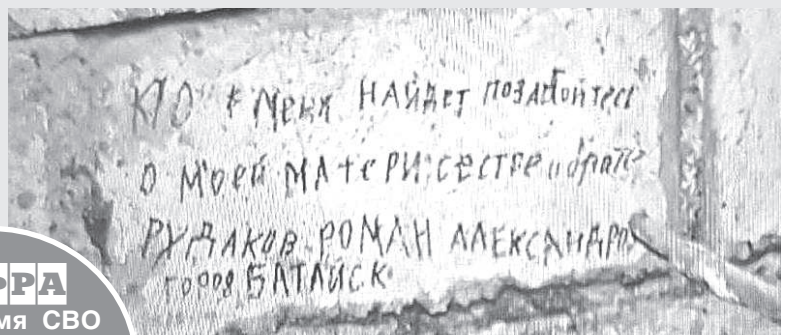 КТО меня НАЙДЕТ ПОЗАБОТЬТЕСЬ
О МОЕЙ МАТЕРИ, СЕСТРЕ и брате
РУДАКОВ РОМАН АЛЕКСАНДРО
город БАТАЙСК
СВО